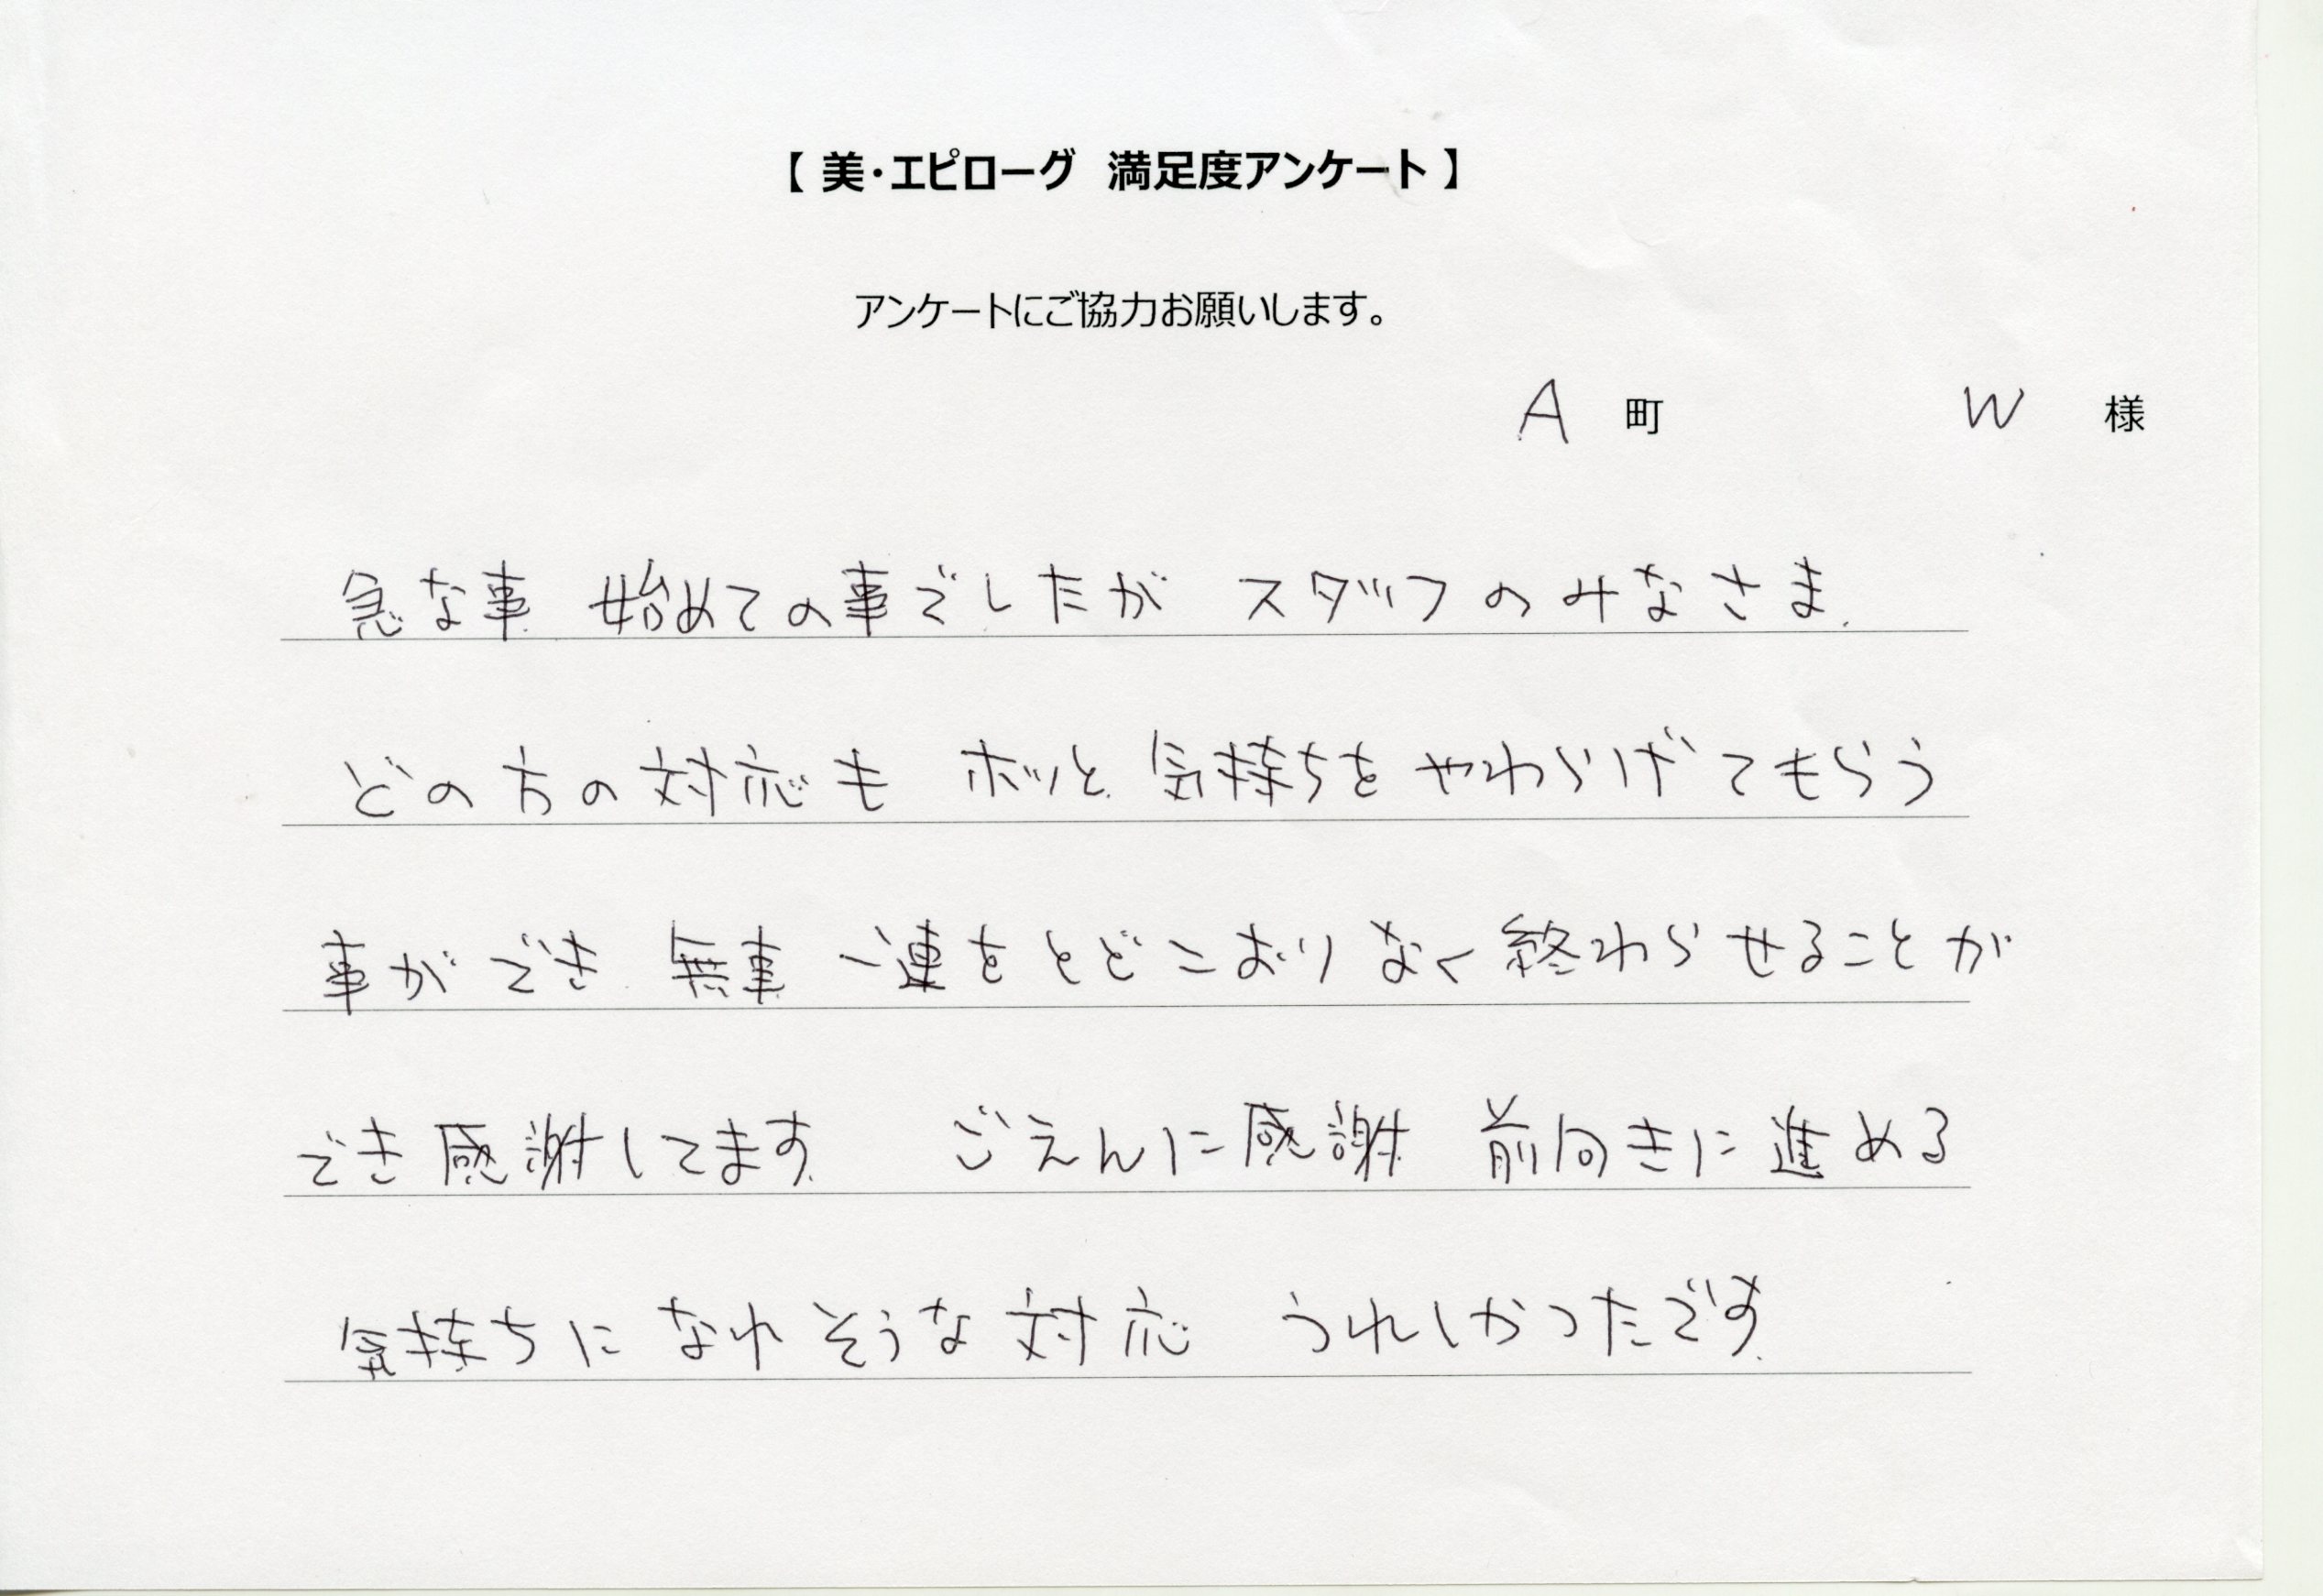 【 美・エピローグ　満足度アンケート 】
アンケートにご協力お願いします。
A 町　W 様
急な事 始めての事でしたが スタッフのみなさま
どの方の対応も ホッと 気持ちを やわらげてもらう
事ができ 無事 一連をとどこおりなく終わらせることが
でき感謝してます　ごえんに感謝　前向きに進める
気持ちに なれそうな対応　うれしかったです